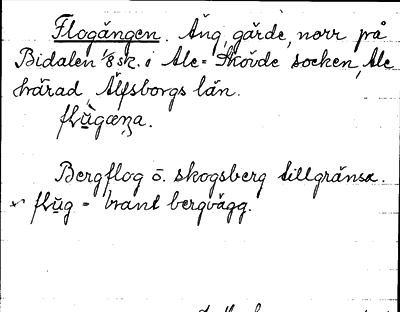 Flogången. Äng, gärde, norr på
Bidalen 1/8 sk. i Ale-Skövde socken, Ale
härad Älfsborgs län.
flùgæŋa.
Bergflog o. skogsberg tillgränsa.
flug = brant bergvägg.